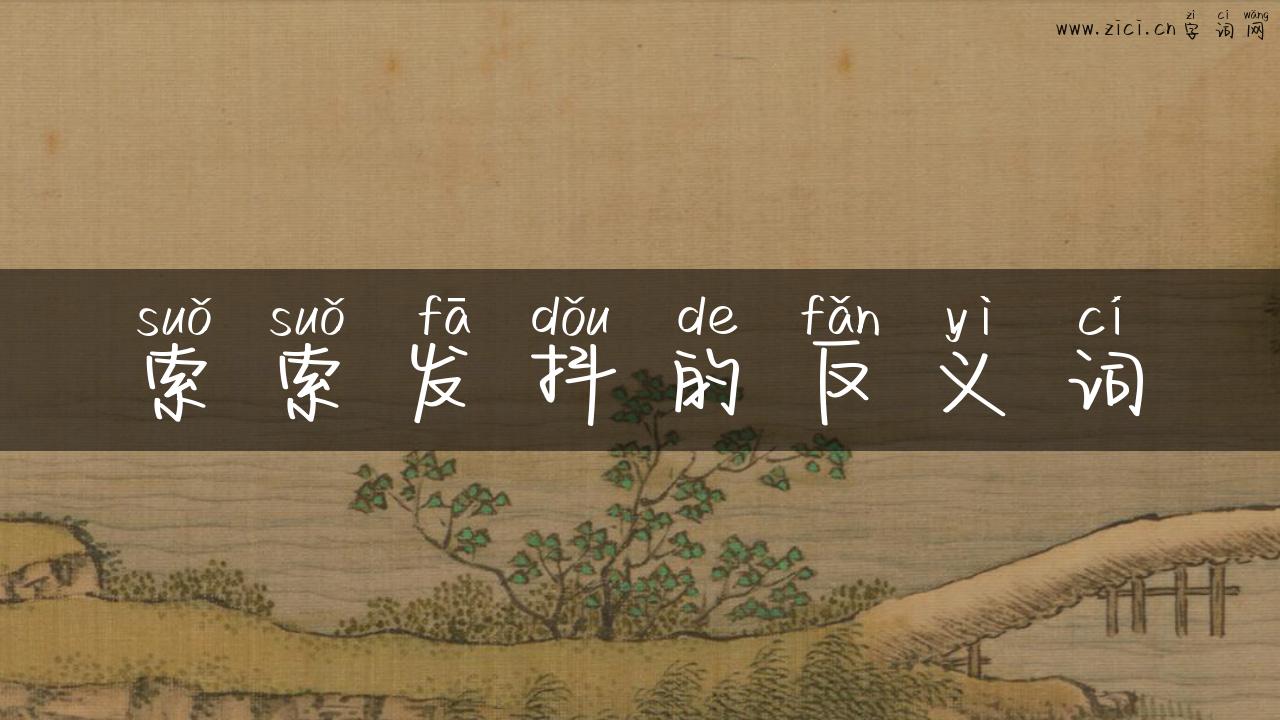 zì cí wǎng
www.zici.cn 字词网
suǒ suǒ fā dǒu de fǎn yì cí
索索发抖的反义词